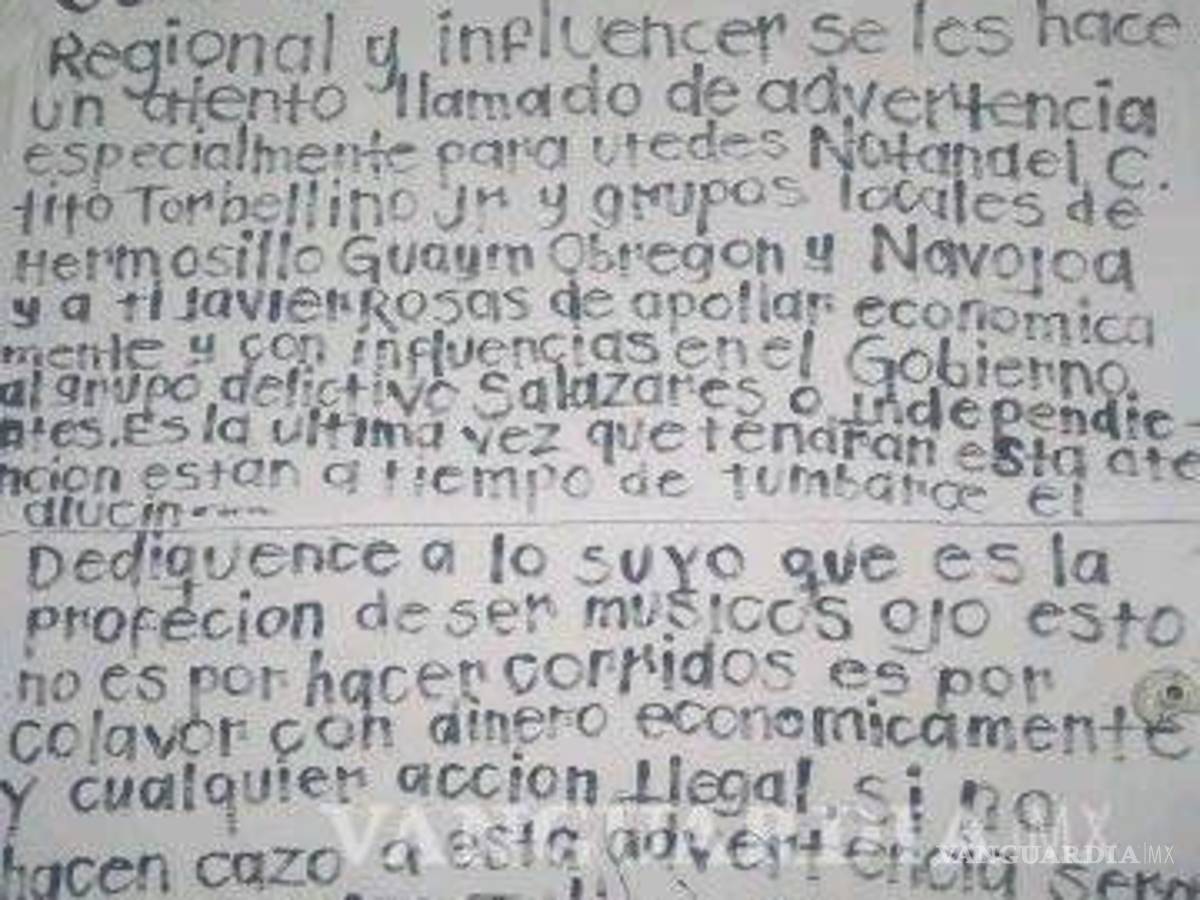 Regional y influencer se les hace
un atento llamado de advertencia
especialmente para utedes Natandel C.
tito Torbellino Jr y grupos locales de
Hermosillo Guaym Obregon y Navojoa
y a ti Javier Rosas de apollar economica
mente y con influencias en el Gobierno.
al grupo delictivo Salazares o Independie-
ntes. Es la ultima vez que tendran esta ate
ncion estan a tiempo de tumbarce el
alucin----
Dediquence a lo suyo que es la
profecion de ser musicos ojo esto
no es por hacer corridos es por
colavor con dinero economicamente
y cualquier accion Ilegal si no
hacen cazo a esta advertencia seran
VANGUARDIA MX
VANGUARDIA|MX